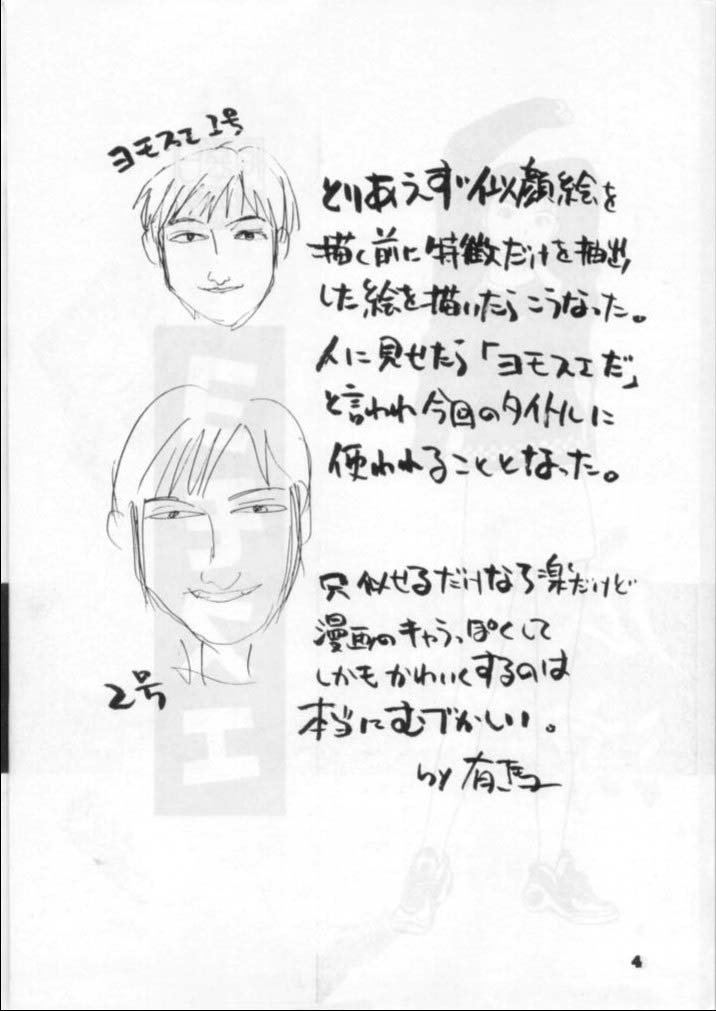 ヨモスエ1号
とりあえず似顔絵を
描く前に特徴だけを抽出
した絵を描いたらこうなった。
人に見せたら「ヨモスエだ」
と言われ今回のタイトルに
使われることとなった。
只似せるだけなら楽だけど
漫画のキャラっぽくして
しかもかわいくするのは
本当にむづかしい。
by 有馬
2号
4